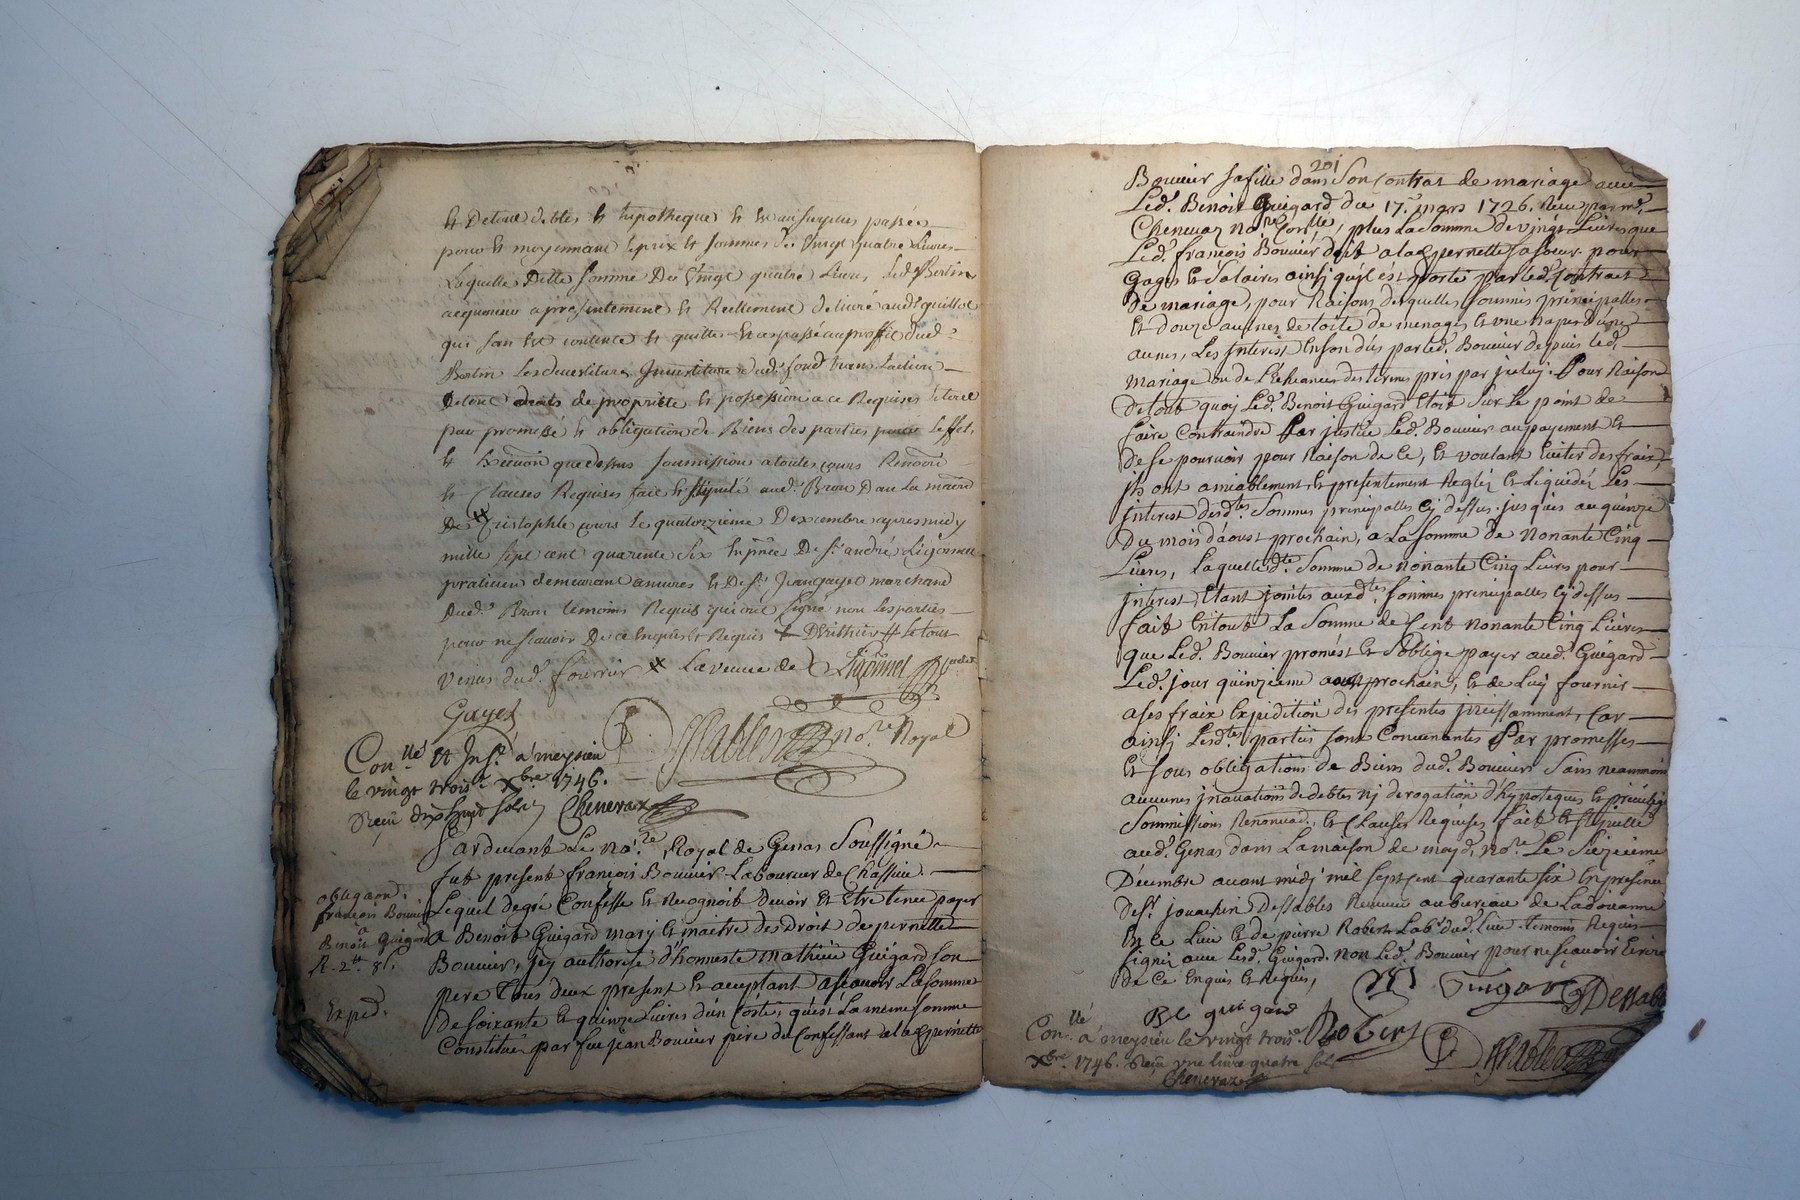 et de toute debtes et hipotheque et
pour et moyennant le prix et sommes de vingt quatre Livres
Laquelle ditte somme de vingt quatre Livres, led. Bertin
acquereur a presentement et Reellement delivré aud.
qui san est contente et quitte
Bertin
de tout droits de propriette et possession a ce Requises
par promesse et obligation de Biens des parties pour leffet,
et que dessus soumissions a toutes cours
et Clauses Requises fait et stipulé aud. Bron dan la maison
de Cristophle le quatorzieme Dexcembre apres midy
mille sept cent quarente six En p.nce De s.r andré Ligonnet
praticien demeurant et De s.r Jean gayet marchand
dud. Bron temoins Requis qui ont signé non les parties
pour ne scavoir De ce Enquis et Requis
dud. fourrier x La veuve de Ligonnet
Gayet
DesSables no.re Royal
Con.llé et Ins.é a meysieu
le vingt trois.e X.bre 1746.
Receu dix huit sols Chenevaz
Pardevant Le no.re Royal de Genas Soussigné
fut present françois Bouvier Laboureur de Chassieu
obligaon.
françois Bouvier
a
Benoit Guigard
R. 2.tt 8 s.
Exped.
Lequel de gré Confesse et Recognoit devoir et Etre tenu payer
A Benoit Guigard mary et maitre des Droit de pernette
Bouvier, icy authorisé d'honneste mathieu Guigard son
pere tous deux present et acceptant ascavoir La somme
de soixante et quinze Livres d'un Costé, qu'est La meme somme
Constitué par feu jean Bouvier pere du Confessant a lad. pernette
201
Bouvier sa fille dans Son Contrat de mariage avec
Led. Benoit Guigard du 17.e mars 1726. Receu par m.e
Chenevaz no.re Con.llé, plus La somme de vingt Livres que
Led. françois Bouvier doit a lad. pernette sa soeur pour
Gages et Salaires ainsy quil est porté par led. Contrat
de mariage, pour Raisons desquelles sommes principalles
Et douze aunes de toile de menage et une nape
aunes, Les Interist En son dûs par led. Bouvier depuis led.
Mariage ou de L'Echeance des termes pris par jceluy. Pour Raison
de tout quoy Led. Benoit Guigard Etoit Sur Le point de
faire Contraindre Par justice Led. Bouvier au payement et
de se pourvoir pour Raison de Ce, Et voulant Eviter des fraix,
jls ont amiablement et presentement Reglez et Liquidez Les
jnterist desd.tes Sommes principalles cy dessus jusques au quinze
Du mois d'aoust prochain, a La somme de Nonante Cinq
Livres, Laquelle d.te Somme de nonante Cinq Livres pour
jnterist Etant jointes auxd.tes sommes principalles cy dessus
fait En tout La Somme de Cent Nonante Cinq Livres
que Led. Bouvier promest et S'oblige payer aud. Guigard
Led. jour quinzieme aoust prochain, et de Luy fournir
a ses fraix Expedition des presentes jncessamment, Car
ainsy Lesd.tes parties sont Convenantes Par promesses
Et sous obligations de Biens dud. Bouvier Sans neanmoins
aucunes jnovations de debtes nj derogation d'hypoteques et
Sommissions Renonuad. et Clauses Requises fait et stipullé
aud. Genas dans La maison de moyd. no.re Le Siezieme
Décembre avant midj mil sept cent quarante six En présence
de s.r jouachin Dessables Receveur au bureau de La douanne
En Ce Lieu et de pierre Robert Lab.r dud. Lieu temoins Requis
signez avec Lesd. Guigard. non Led. Bouvier pour ne scavoir Ecrire
de Ce Enquis et Requis,
Be guigard Guigard DesSables
Robert
Con.llé a meysieu le vingt trois.e
X.bre 1746. Receu une livre quatre sols
Chenevaz
DesSables